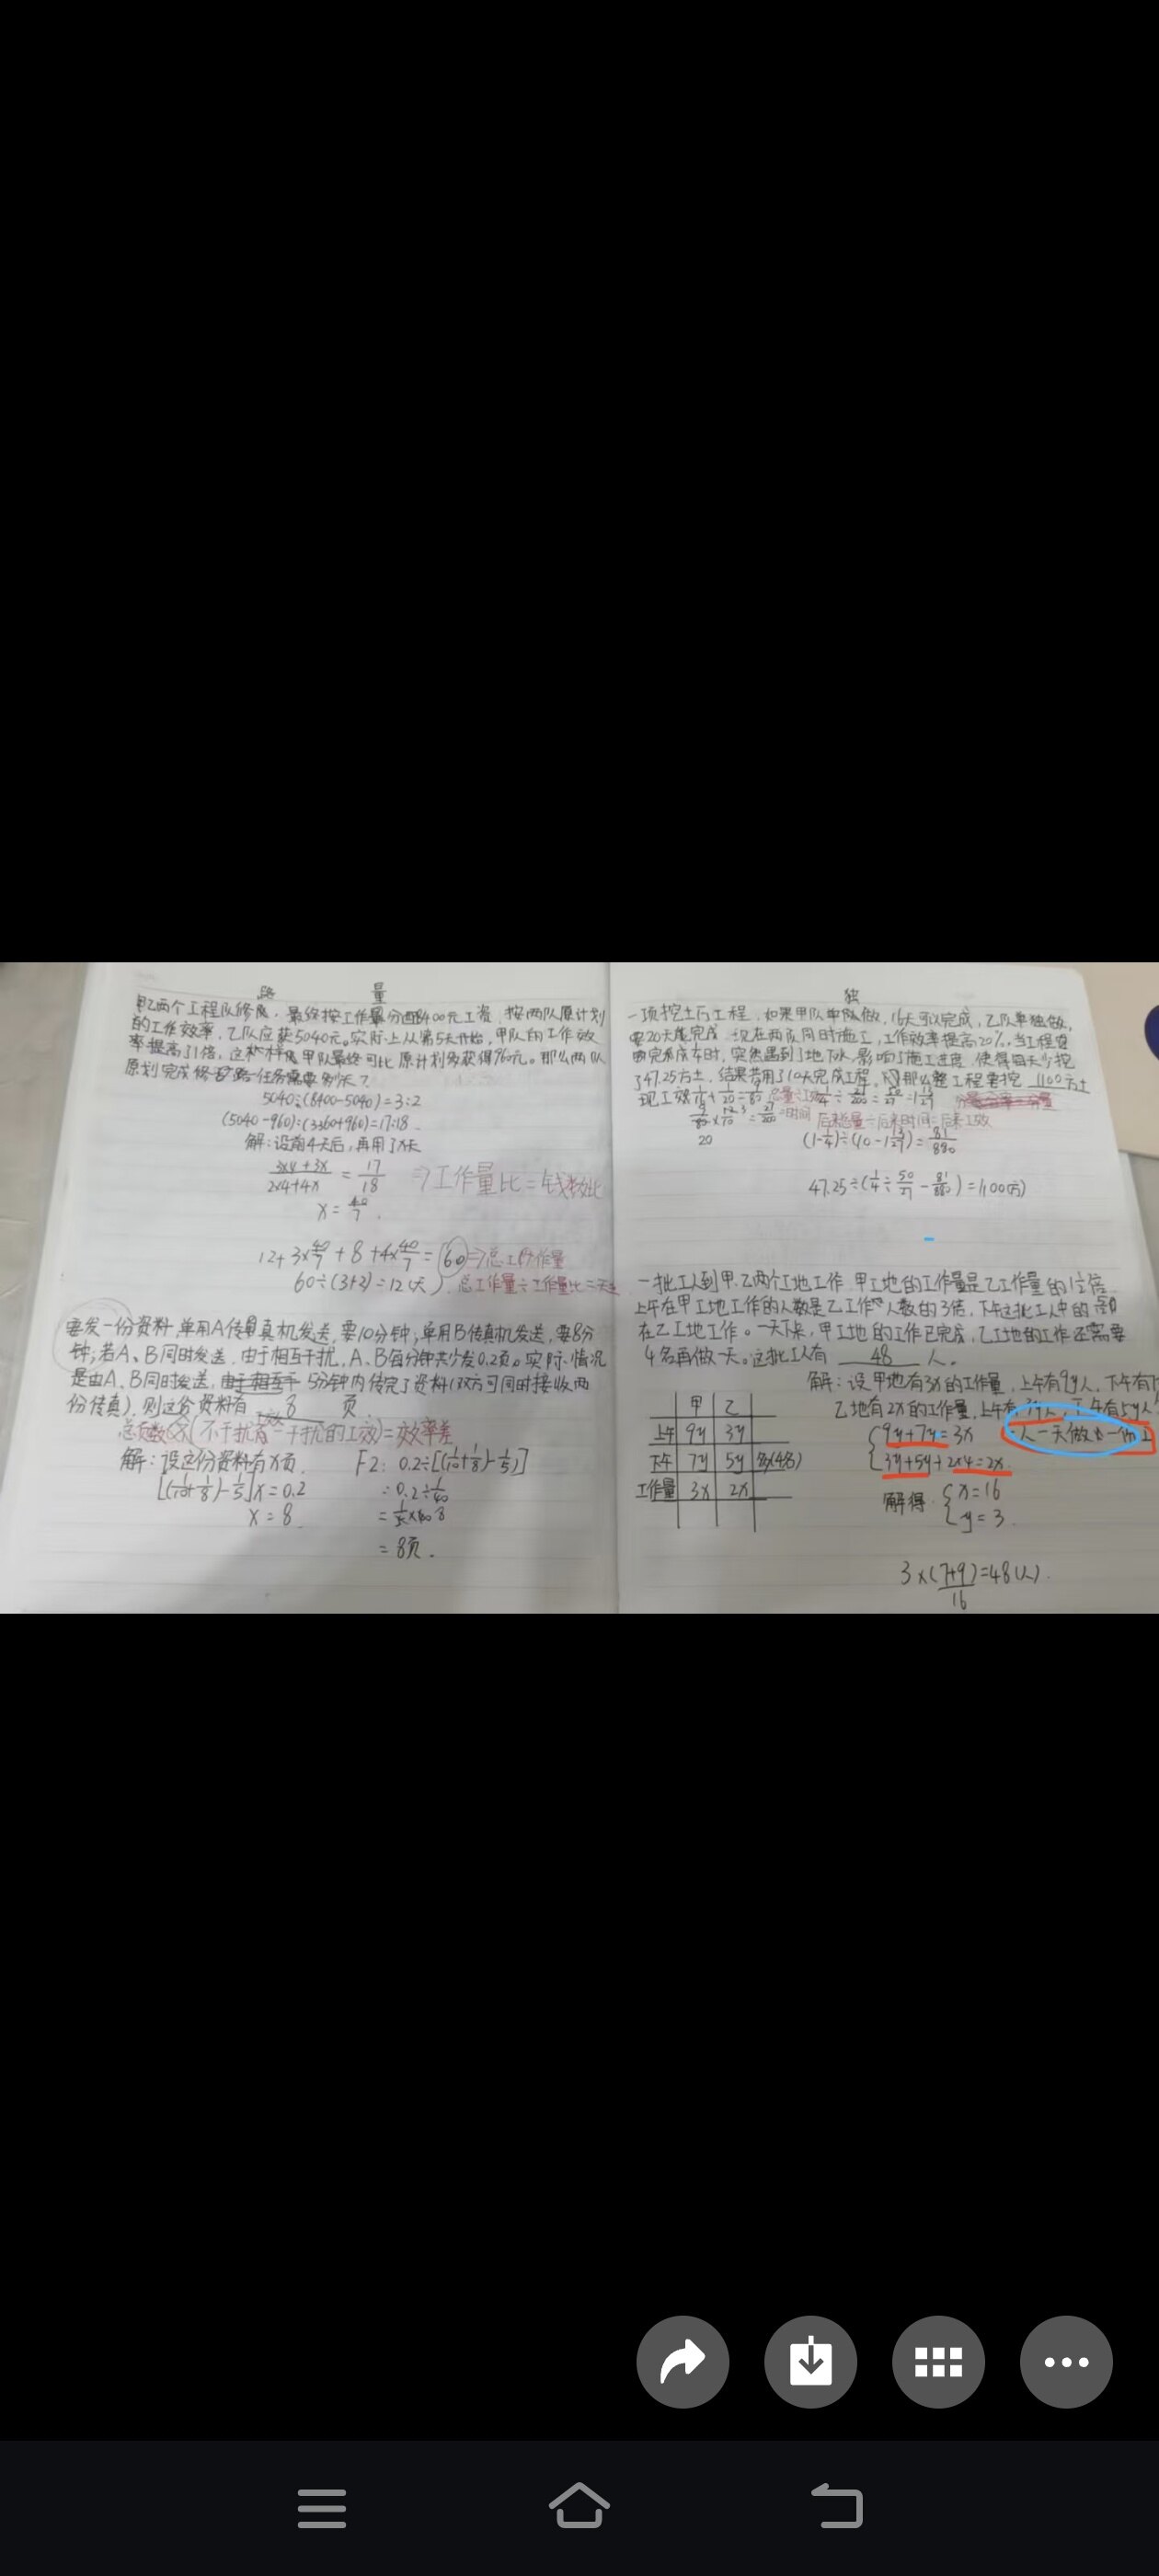 路 量
甲乙两个工程队修,最终按工作量分配8400元工资,按两队原计划
的工作效率,乙队应获5040元。实际上从第5天开始,甲队的工作效
率提高了1倍,这样甲队最终可比原计划多获得960元。那么两队
原划完成修路任务需要多少天?
5040:(8400-5040)=3:2
(5040-960):(3360+960)=17:18
解:设前4天后,再用了x天
3×4+3x/2×4+4x = 17/18 ⇒工作量比=钱数比
x=40/7.
12+3×40/7+8+4×40/7=60⇒总工作量
60÷(3+2)=12(天) 总工作量÷工作量比=天
要发一份资料,单用A传真机发送,要10分钟;单用B传真机发送,要8分
钟;若A、B同时发送,由于相互干扰,A、B每分钟共少发0.2页。实际情况
是由A、B同时发送,5分钟内传完了资料(双方可同时接收两
份传真),则这份资料有 8 页.
总页数×(不干扰 - 干扰的工效)=效率差
解:设这份资料有x页. F2: 0.2÷[(1/10+1/8)-1/5]
[(1/10+1/8)-1/5]x=0.2 =0.2÷1/40
x=8. =1/5×40
=8页.
独
一项挖土方工程,如果甲队单做,16天可以完成,乙队单独做,
要20天能完成.现在两队同时施工,工作效率提高20%,当工程
完成时,突然遇到了地下水,影响了施工进度,使得每天少挖
了47.25方土,结果共用了10天完成工程,那么整工程要挖 1100方土
现工效1/16+1/20=9/80 总量÷工效 1/4÷27/200=50/27=1 23/27
9/80×12/10=27/200 =时间 后来总量÷后来时间=后来工效
20 (1-1/4)÷(10-1 23/27)=81/880
47.25÷(1/4÷50/27-81/880)=1100(方)
一批工人到甲.乙两个工地工作.甲工地的工作量是乙工作量的1½倍.
上午在甲工地工作的人数是乙工作人数的3倍,下午这批工人中的
在乙工地工作。一天下来,甲工地的工作已完成,乙工地的工作还需要
4名再做一天。这批工人有 48 人。
解:设甲地有3x的工作量,上午有9y人,下午有7
乙地有2x的工作量,上午有3y人,下午有5y人
甲 乙
上午 9y 3y
下午 7y 5y
工作量 3x 2x
9y+7y=3x
人一天做
3y+5y+2×4=2x.
解得:x=16
y=3.
3×(7+9)=48(人).
16